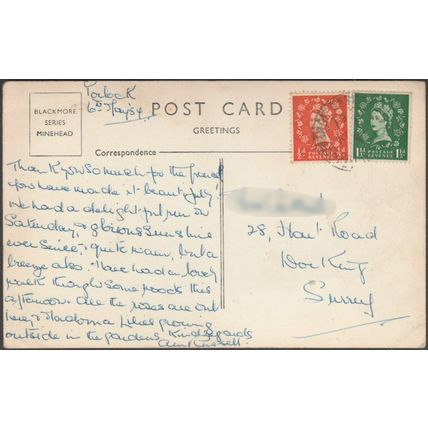 Porlock
6th May 54
BLACKMORE
SERIES
MINEHEAD
POST CARD
GREETINGS
Correspondence
½d POSTAGE REVENUE ½d
1½d POSTAGE REVENUE 1½d
Thank you so much for the
you have made it beautifully!
We had a delightful run on
Saturday, & glorious sunshine
ever since, quite warm, but a
breeze also. Have had a lovely
walk through some woods this
afternoon. All the roses are out
here, & Madonna lilies growing
outside in the gardens. Kind regards
28, Road
Dorking
Surrey